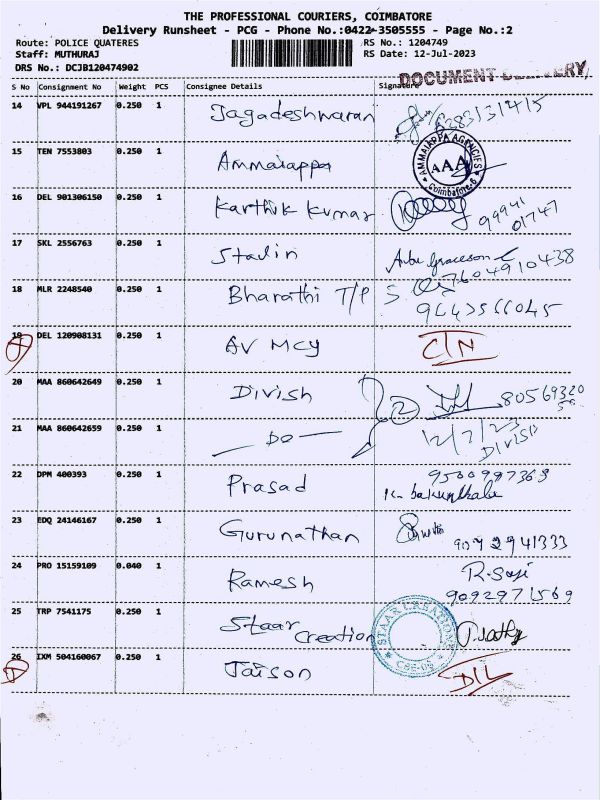 THE PROFESSIONAL COURIERS, COIMBATORE
Delivery Runsheet - PCG - Phone No.:0422-3505555 - Page No.:2
Route: POLICE QUATERES
Staff: MUTHURAJ
DRS No.: DCJB120474902
RS No.: 1204749
RS Date: 12-Jul-2023
DOCUMENT DELIVERY
S No Consignment No Weight PCS Consignee Details Signature
14 VPL 944191267 0.250 1 Jagadeshwaran 6283131415
15 TEN 7553803 0.250 1 Ammaiappa AMMAIAPPA AGENCIES AAA Coimbatore-6
16 DEL 901306150 0.250 1 Karthik Kumar 99941 01747
17 SKL 2556763 0.250 1 Stalin 7604910438
18 MLR 2248540 0.250 1 Bharathi T/P
19 DEL 120908131 0.250 1 AV MCY C/N
20 MAA 860642649 0.250 1 Divish 2 80569320
21 MAA 860642659 0.250 1 — DO — 12/7/23 DIVISH
22 DPM 400393 0.250 1 Prasad 9500997369
23 EDQ 24146167 0.250 1 Gurunathan
24 PRO 15159109 0.040 1 Ramesh R. Saji 9092971569
25 TRP 7541175 0.250 1 Staar Creation STAAR CREATION CBE-05
26 IXM 504160067 0.250 1 Jaison D/L